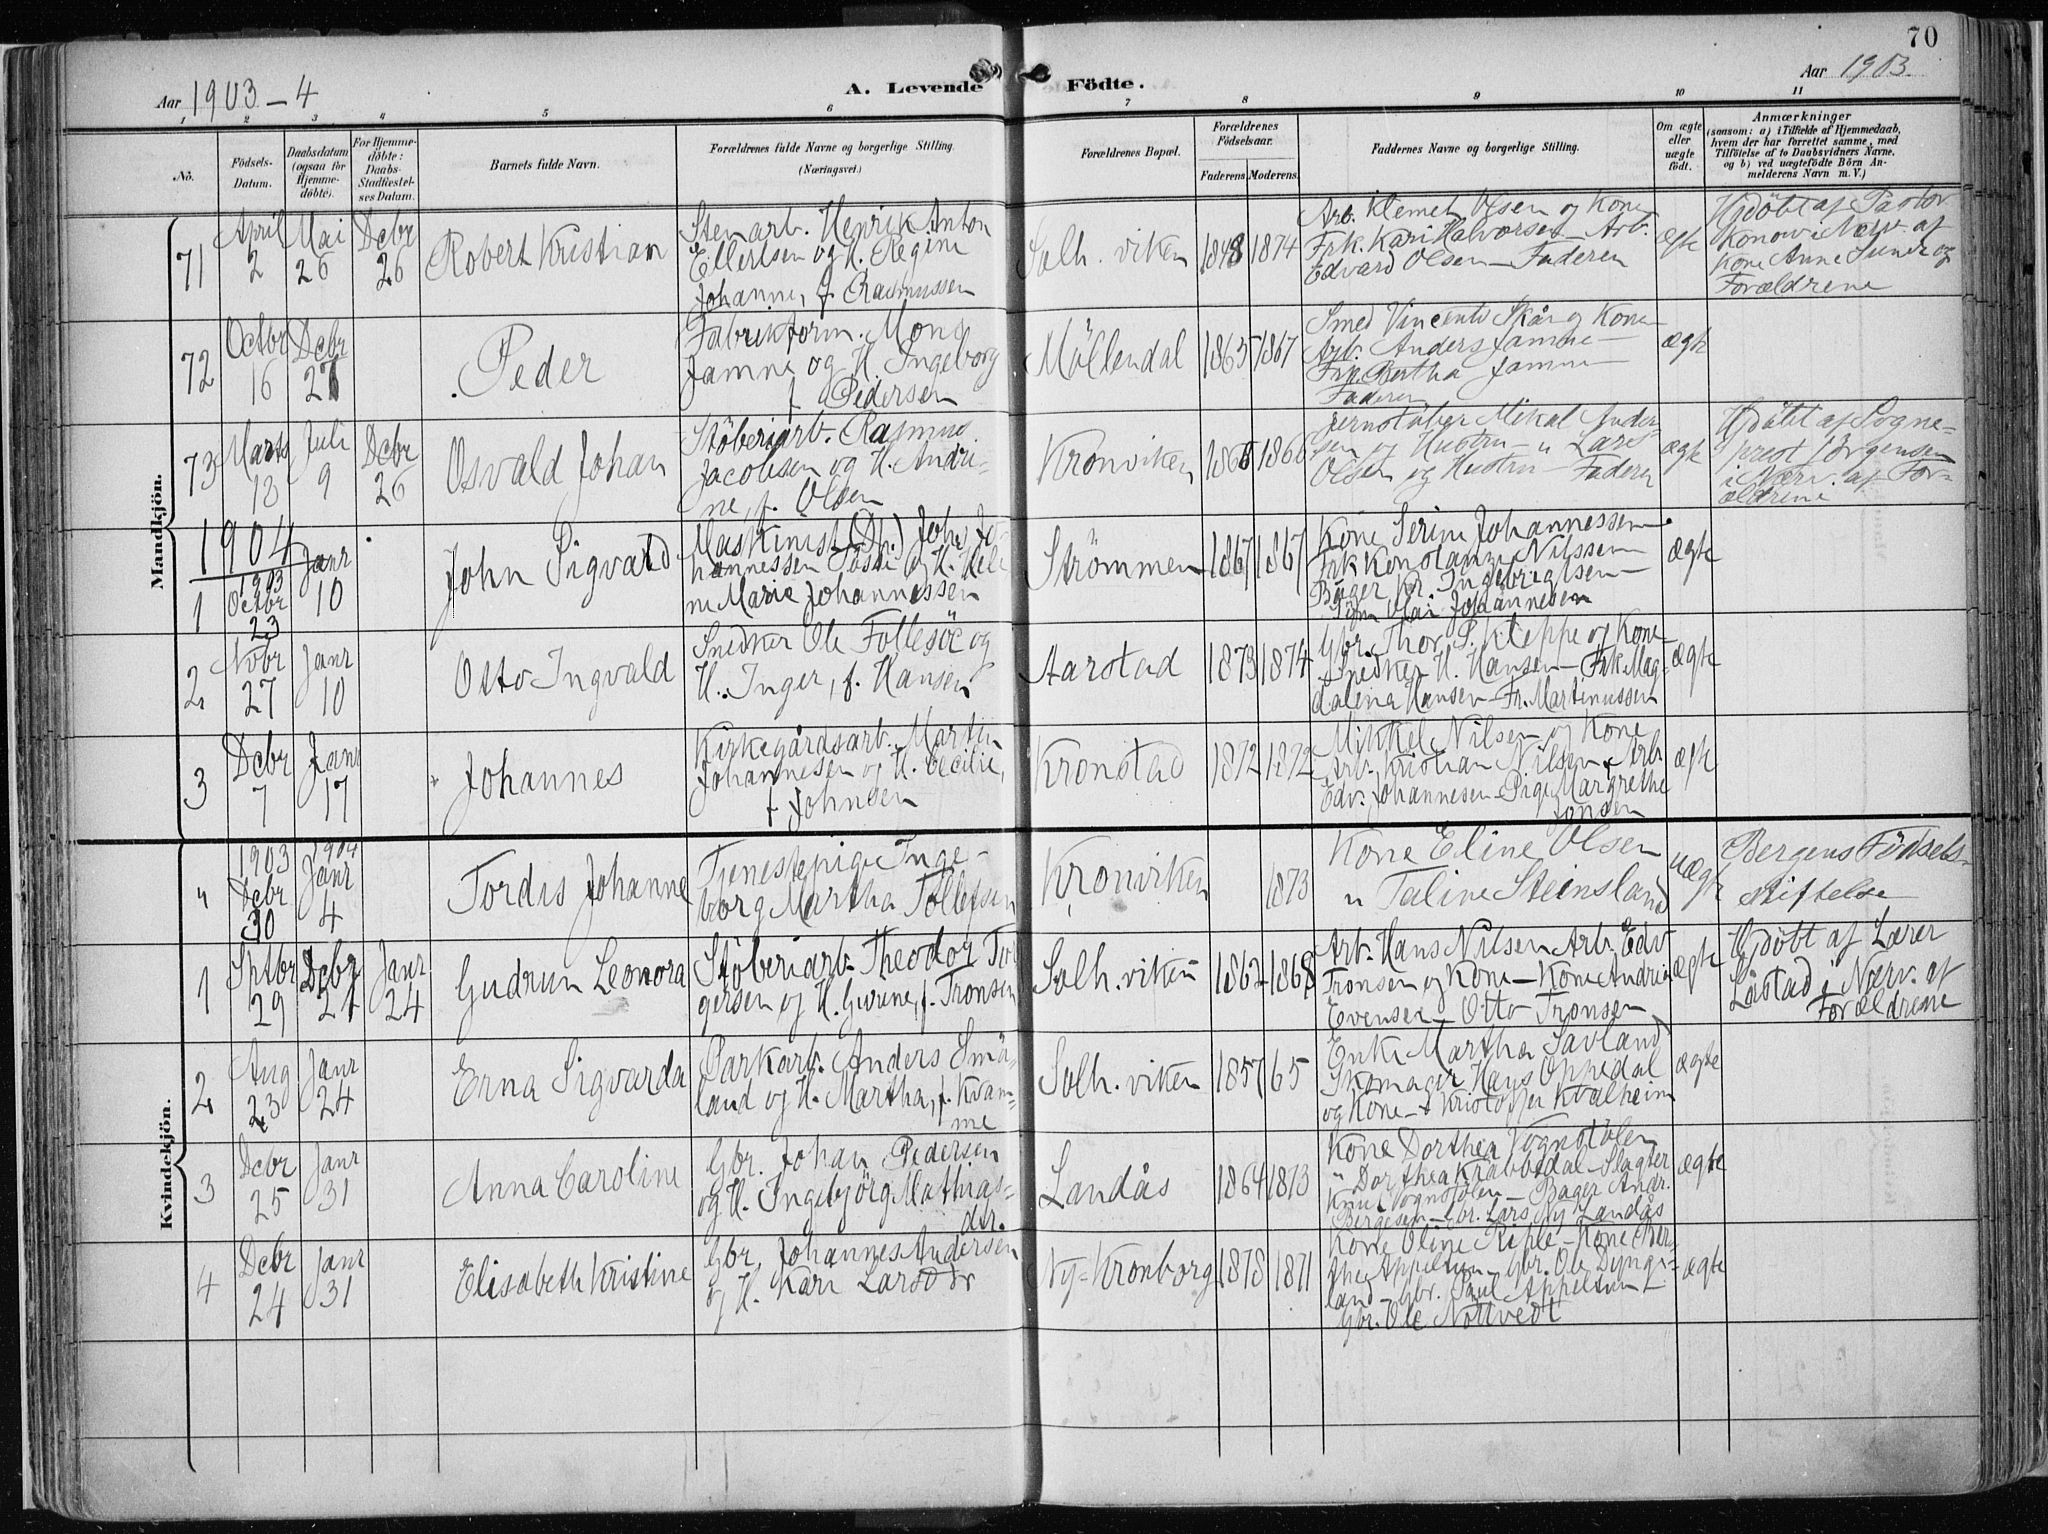 70
Aar 1903-4
A. Levende Födte.
Aar 1903.
1 2 3 4 5 6 7 8 9 10 11
No.
Födsels-
Datum.
Daabsdatum
(ogsaa for
Hjemme-
döbte).
For Hjemme-
döbte:
Daabs-
Stadfæstel-
ses Datum.
Barnets fulde Navn.
Forældrenes fulde Navne og borgerlige Stilling.
(Næringsvei.)
Forældrenes Bopæl.
Forældrenes
Födselsaar.
Faderens. Moderens.
Faddernes Navne og borgerlige Stilling.
Om ægte
eller
uægte
födt.
Anmærkninger
(saasom: a) i Tilfælde af Hjemmedaab,
hvem der har forrettet samme, med
Tilföielse af to Daabsvidners Navne,
og b) ved uægtefödte Börn An-
melderens Navn m. V.)
Mandkjön.
71
April
2
Mai
26
Dcbr
26
Robert Kristian
Stenarb. Henrik Anton
Ellertsen og H. Regine
Johanne, f. Rasmussen
Solh. viken
1848
1874
Arb. Klemet Olsen og Kone
Frk. Kari Halvorsen - Arb.
Edvard Olsen - Faderen
ægte
Hjdöbt af Pastor
Konow i Nærv. af
Kone Anne Sunde og
Forældrene
72
Octbr
16
Dcbr
27
Peder
Fabrikform. Mons
Jamne og H. Ingeborg
f. Pedersen
Möllendal
1865
1867
Smed Vincents Skår og Kone
Arb. Anders Jamne -
Frk. Bertha Jamne -
Faderen
ægte
73
Marts
13
Juli
9
Dcbr
26
Osvald Johan
Stöberiarb. Rasmus
Jacobsen og H. Andri-
ne, f. Olsen
Kronviken
1866
1866
Jernstöber Mikal Ander-
sen og Hustru - " Lars
Olsen og Hustru - Faderen
ægte
Hjdöbt af Sogne-
prest Jörgensen
i Nærv. af For-
ældrene
1904
1
1903
Octbr
23
Janr
10
John Sigvard
Maskinist (Ds.) John Jo-
hannessen og H.
ne Marie Johannessen
Strömmen
1867
1867
Kone Serine Johannessen
Frk Konstanze Nilssen
Bager Kr. Ingebrigtsen -
Olai Johannesen
ægte
2
Nvbr
27
Janr
10
Otto Ingvald
Snedker Ole Follesöe og
H. Inger, f. Hansen
Aarstad
1873
1874
Gbr. Thor P. Kleppe og Kone
Snedker H. Hansen - Frk Mag-
dalena Hansen - Fr. Martinussen
ægte
3
Dcbr
7
Janr
17
Johannes
Kirkegårdsarb. Martin
Johannesen og H. Cecilie,
f. Johnsen
Kronstad
1872
1872
Mikkel Nilsen og Kone
Arb. Kristian Nilsen + Arb
Edv. Johannesen - Pige Margrethe
Jonsen
ægte
Kvindekjön.
"
1903
Dcbr
30
1904
Janr
4
Tordis Johanne
Tjenestepige Inge-
borg Martha Tollefsen
Kronviken
1873
Kone Eline Olsen
" Taline Steinsland
uægte
Bergens Födsels-
stiftelse
1
Sptbr
29
Dcbr
21
Janr
24
Gudrun Leonora
Stöberiarb. Theodor Tor
gersen og H. Gurine, f. Tronsen
Solh. viken
1862
1868
Arb. Hans Nilsen Arb. Edv
Tronsen og Kone - Kone Andrea
Evensen - Otto Tronsen
ægte
Hjdöbt af Lærer
Låstad i Nærv. af
Forældrene
2
Aug
23
Janr
24
Erna Sigvarda
Parkarb. Anders Små-
land og H. Martha, f. Kvam-
me
Solh. viken
1857
65
Enke Martha Savland
Skomager Hans Oppedal
og Kone - Kristoffer Kvalheim
ægte
3
Dcbr
25
Janr
31
Anna Caroline
Gbr. Johan Pedersen
og H. Ingebjörg Mathias-
dtr.
Landås
1864
1873
Kone Dorthea Vognstölen
" Dorthea Krabbedal - Slagter
Knut Vognstölen - Bager Andr.
Bergesen - Gbr. Lars Ny Landås
ægte
4
Dcbr
24
Janr
31
Elisabeth Kristine
Gbr. Johannes Andersen
og H. Kari Larsdtr
Ny=Kronborg
1878
1871
Kone Oline Riple - Kone Ber-
tha Appeltun - Gbr. Ole Dynge-
land - Gbr. Paul Appeltun -
Gbr. Ole Nöttvedt
ægte